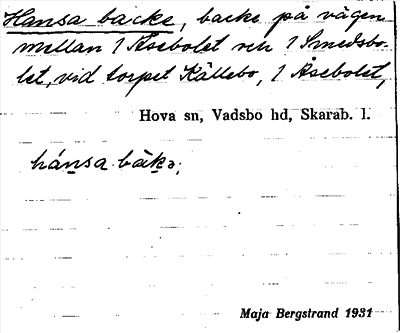 Hansa backe, backe på vägen
mellan 1 Åsebolet och 1 Smedsbo-
let, vid torpet Källebo, 1 Åsebolet,
Hova sn, Vadsbo hd, Skarab. l.
hánsa bàkə;
Maja Bergstrand 1931